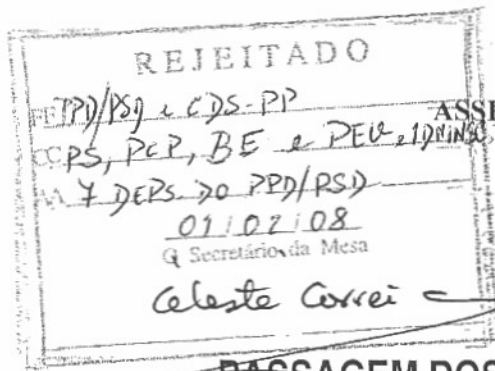 REJEITADO
PPD/PSD e CDS-PP
PS, PCP, BE e PEV e 1 DNINSC
7 DEPS. DO PPD/PSD
01/02/08
Secretário da Mesa
Celeste Correi
ASSE
PASSAGEM DOS